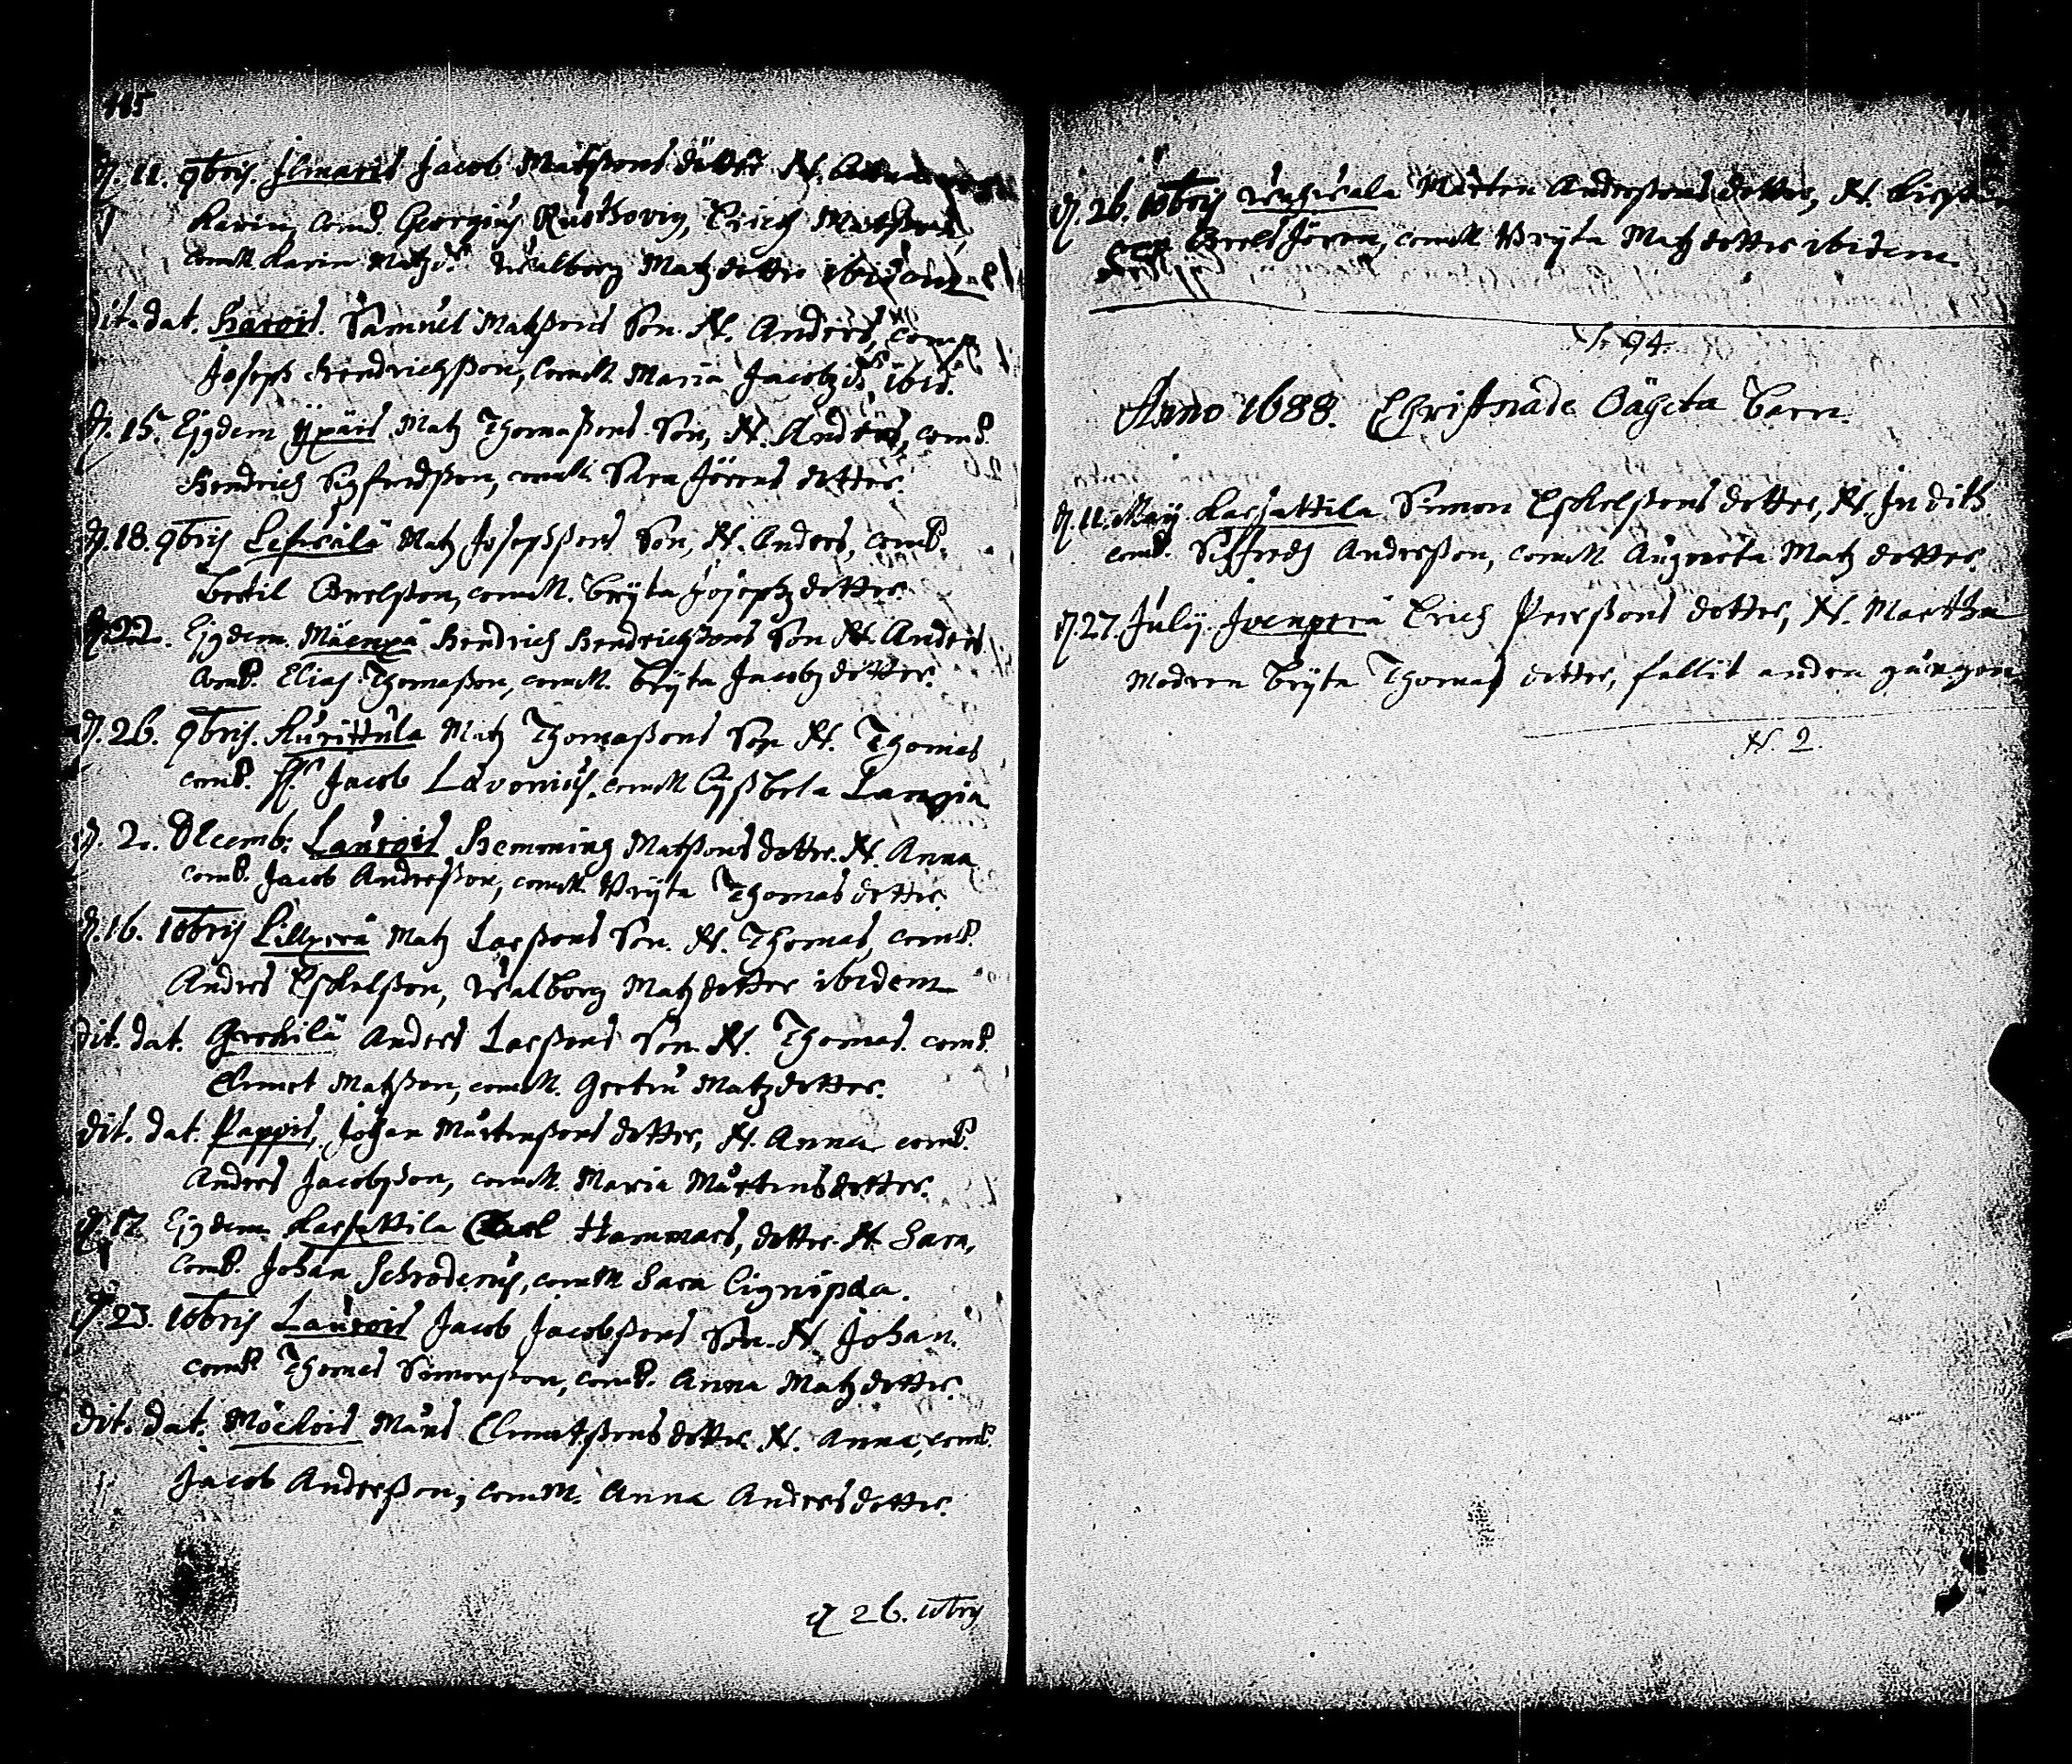 115
d. 11. 9bris. Ilmaris Jacob Matßons dotter N.
Karin, comP. Georgius Rusthovig, Erich Matßon,
comM. Karin Matzdr. Walborg Matzdotter ibidem
dit. dat. Harois. Samuel Matßons Son. N. Anders, comP.
Joseph Hendrichsson, comM. Maria Jacobzdr. ibid.
d. 15. Ejsdem Ypäis Matz Thomaßons Son, N. Anders, comP.
Hendrich Sigfredßon, comM. Sara Jörens dotter.
d. 18. 9bris Matz Josephßons Son, N. Anders, comP.
Bertil Grelsson, comM. Bryta Josephz dotter.
d. 22. Ejsdem. Mäenpä Hendrich Hendrichßons Son N. Anders
comP. Elias Thomaßon, comM. Bryta Jacobz dotter.
d. 26. 9bris. Kurittula Matz Thomaßons Son N. Thomas
comP. H. Jacob Lavonius, comM Lyßbeta Langia
d. 2. Decemb: Laurois Hemming Matßons dotter. N. Anna
comP. Jacob Andersßon, comM. Bryta Thomas dotter.
d. 16. 10bris Lillperä Matz Larßons Son. N. Thomas, comP.
Anders Eskelßon, Walborg Matzdotter ibidem
dit. dat. Gerckilä Anders Larßons Son. N. Thomas. comP.
Clemet Matßon, comM. Gertru Matzdotter.
dit. dat. Pappis, Johan Mårtenßons dotter, N. Anna comP.
Anders Jacobzson, comM. Maria Mårtensdotter.
d. 17 Ejsdem Karsattila Carl Hammars, dotter N. Sara,
comP. Johan Schroderus, comM Sara Cignipæa.
d. 23. 10bris Laurois Jacob Jacobßons Son. N. Johan.
comP. Thomas Simonßon, comP. Anna Matzdotter.
dit. dat. Möckois Måns Clemetßons dotter N. Anna, comP.
Jacob Andersßon, comM. Anna Andersdotter.
d 26. 10bris
d. 26. 10bris Mårten Andersßons dotter, N. Kirstin
Grels Jören, comM Bryta Matz dotter ibidem.
S. 94.
Anno 1688. Christnade Oächta Barn.
d. 11. Maij. Karsattila Simon Eskelßons dotter, N. Judith.
comP. Siffreds Andersßon, comM Augneeta Matz dotter.
d. 27. July. Joenperä Erich Peersßons dotter, N. Martha
Modren Bryta Thomas dotter, fallit andra gången
N. 2.